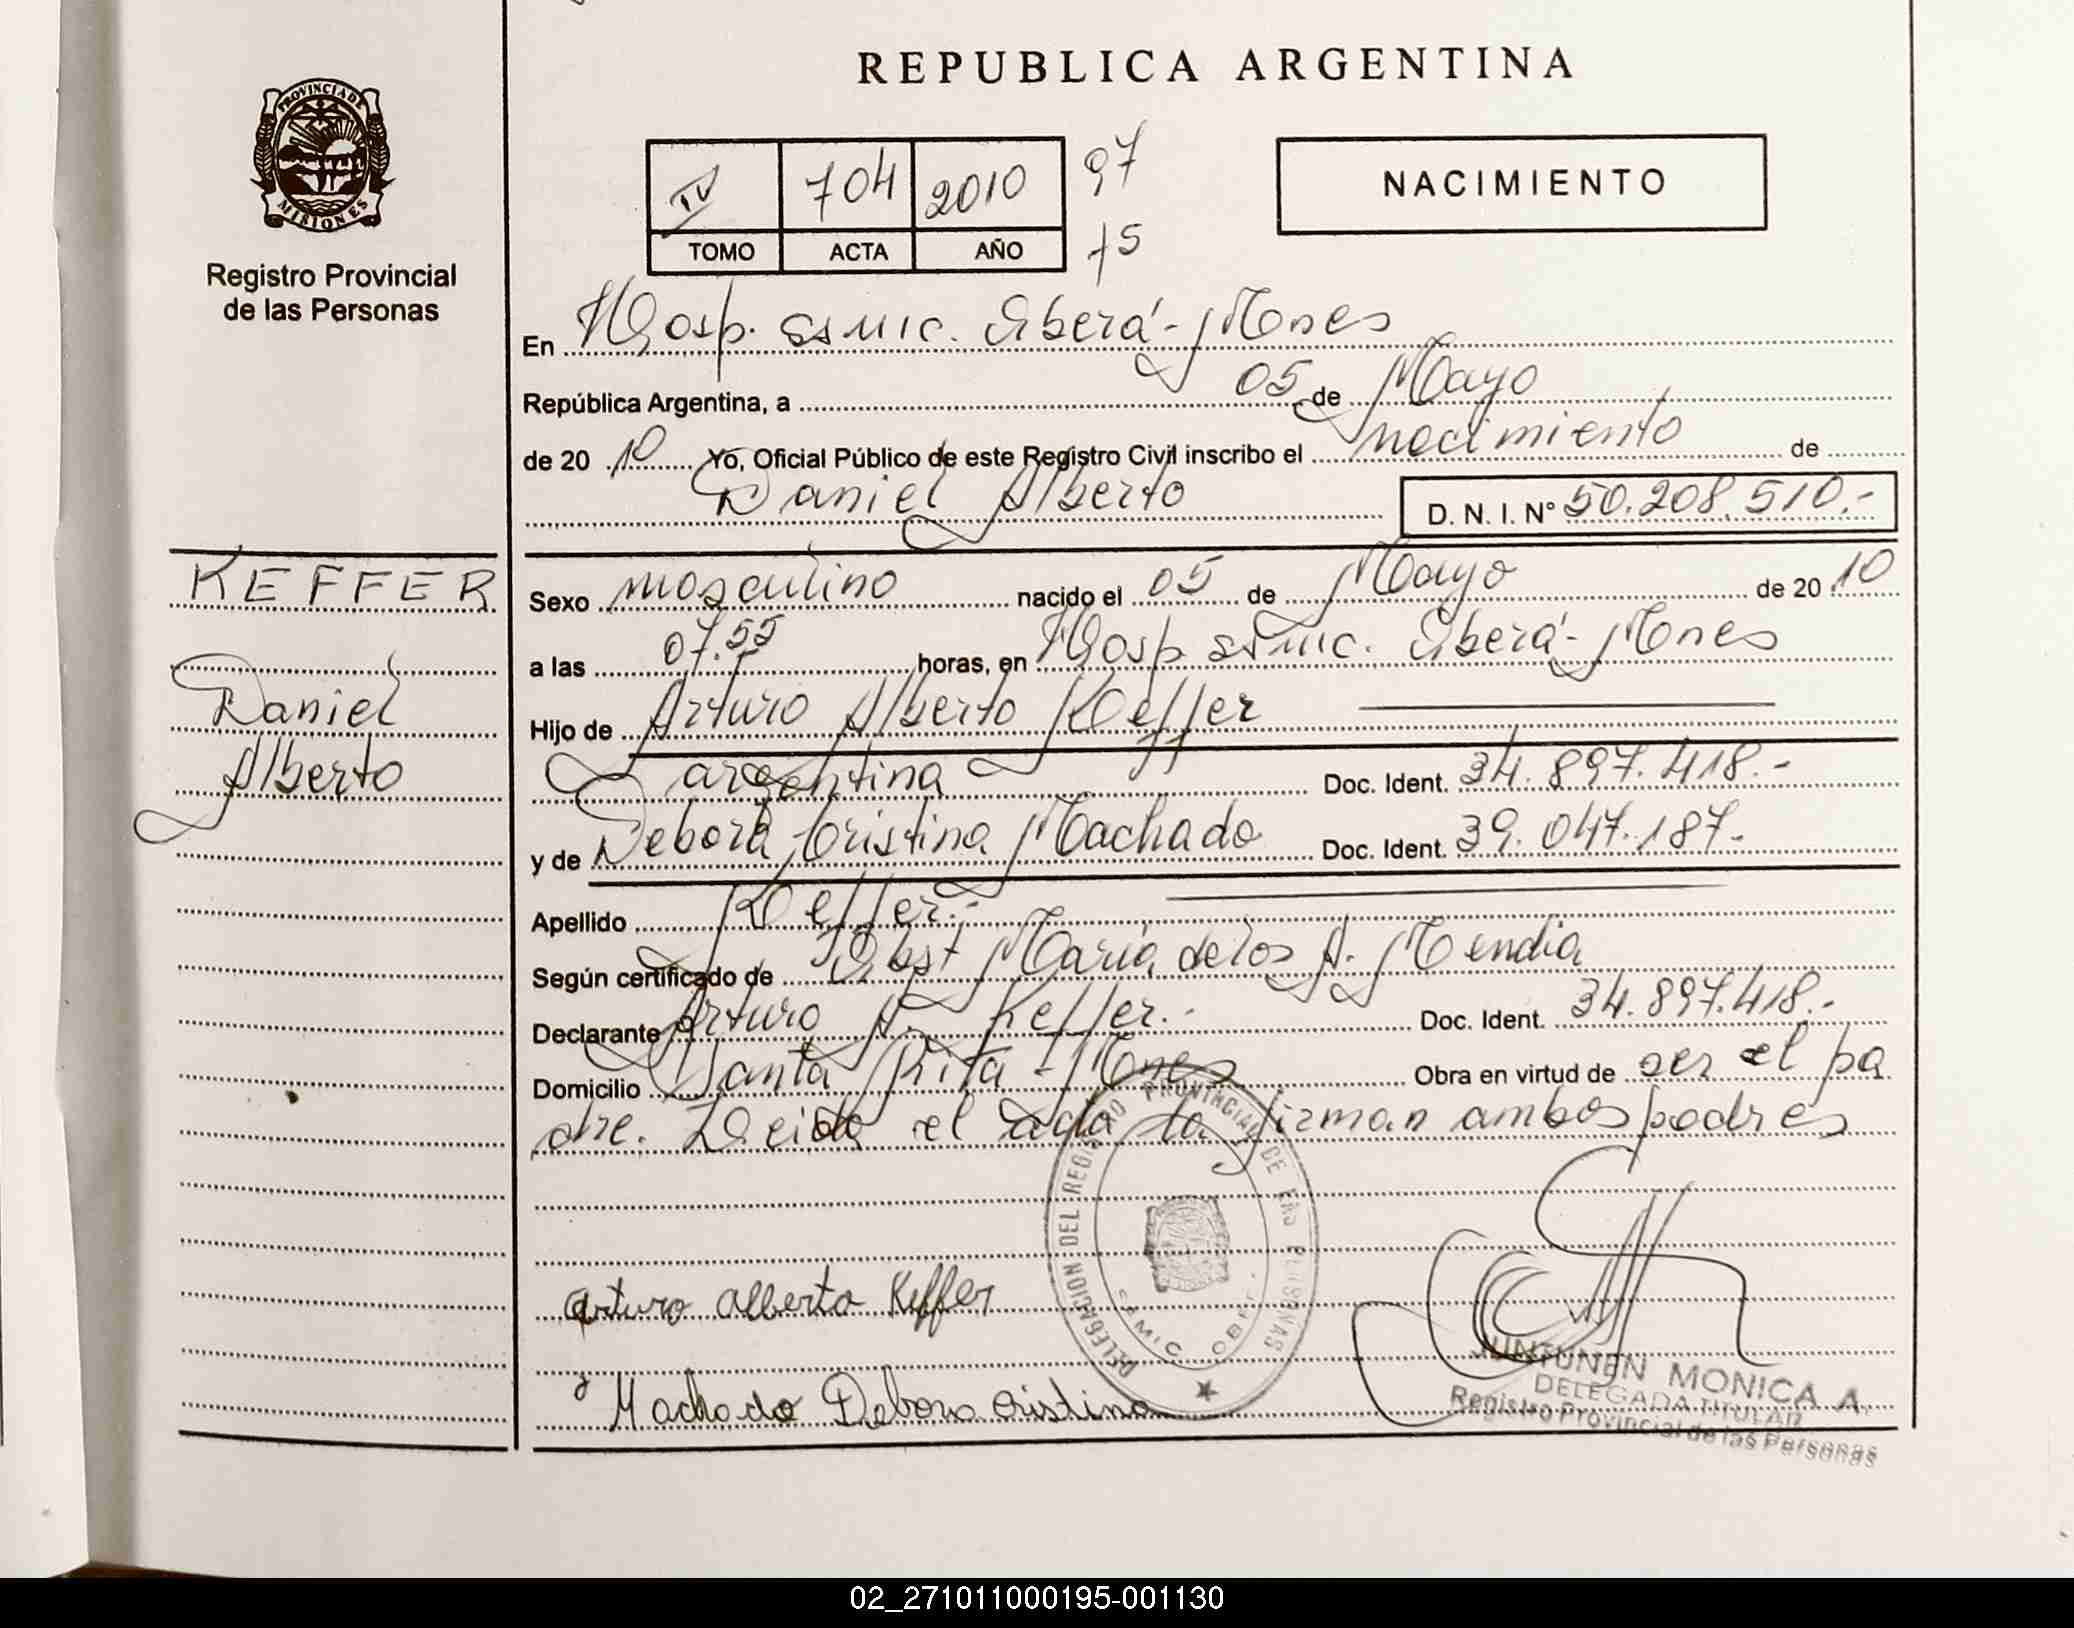 REPUBLICA ARGENTINA
PROVINCIA DE
MISIONES
Registro Provincial
de las Personas
IV 704 2010 97
TOMO ACTA AÑO 75
NACIMIENTO
En Hosp. ssmic. Oberá - Mones
República Argentina, a 05 de Mayo
de 20 10 Yo, Oficial Público de este Registro Civil inscribo el nacimiento de
Daniel Alberto D. N. I. Nº 50.208.510.-
KEFFER
Daniel
Alberto
Sexo masculino nacido el 05 de Mayo de 20 10
a las 07.55 horas, en Hosp. ssmic. Oberá - Mones
Hijo de Arturo Alberto Keffer
argentina Doc. Ident. 34.897.418.-
y de Debora Cristina Machado Doc. Ident. 39.047.187.-
Apellido Keffer.-
Según certificado de Obst María de los A. Mendia
Declarante Arturo A. Keffer.- Doc. Ident. 34.897.418.-
Domicilio Santa Rita - Mones Obra en virtud de ser el pa
dre. Leida el acta la firman ambos padres
DELEGACION DEL REGISTRO PROVINCIAL DE LAS PERSONAS
arturo alberto Keffer
Machado Debora cristina
JUNTUNEN MONICA A.
DELEGADA TITULAR
Registro Provincial de las Personas
02_271011000195-001130